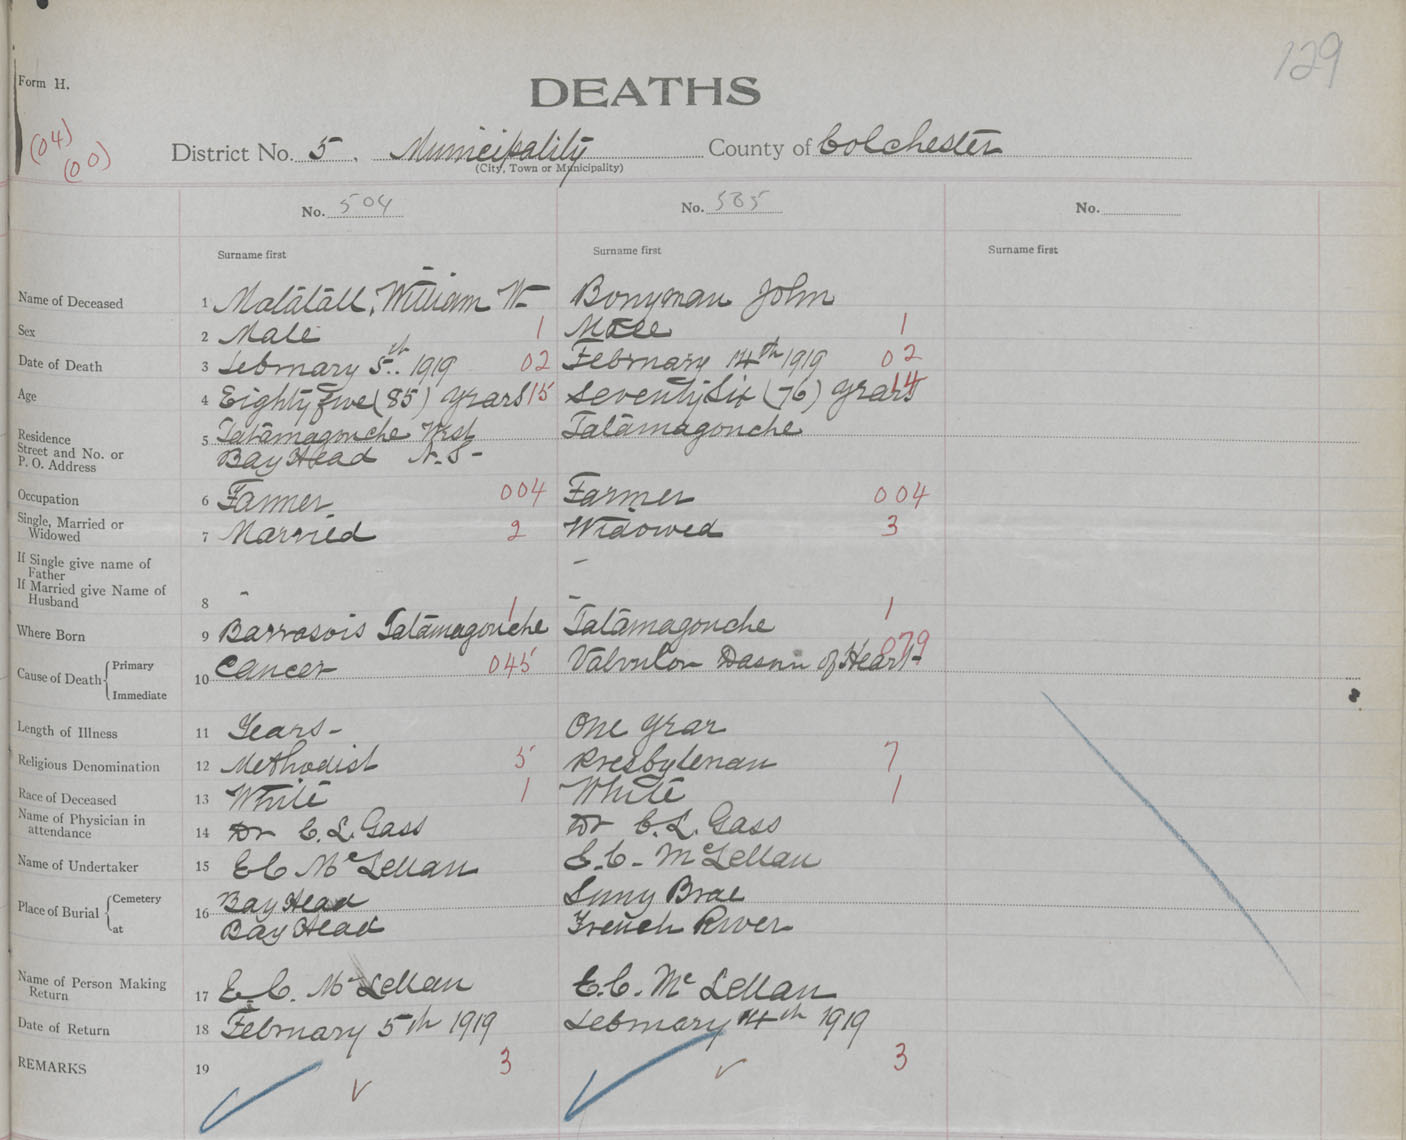 129
Form H.
DEATHS
(04)
(00)
District No. 5. Municipality County of Colchester
(City, Town or Municipality)
No. 504 No. 505 No.
Surname first Surname first Surname first
Name of Deceased 1 Matatall, William W- Bonyman John
Sex 2 Male 1 Male 1
Date of Death 3 February 5th. 1919 02 February 14th 1919 02
Age 4 Eighty five (85) years 15 Seventy Six (76) years 14
Residence
Street and No. or
P. O. Address
5 Tatamagouche West Tatamagouche
Bay Head N.S-
Occupation 6 Farmer 004 Farmer 004
Single, Married or
Widowed 7 Married 2 Widowed 3
If Single give name of
Father -
If Married give Name of
Husband 8 - -
Where Born 9 Barrasois Tatamagouche 1 Tatamagouche 1
Cause of Death { Primary
Immediate
10 Cancer 045 Valvular Disease of Heart- 079
Length of Illness 11 Years- One year
Religious Denomination 12 Methodist 5 Presbyterian 7
Race of Deceased 13 White 1 White 1
Name of Physician in
attendance 14 Dr C. L. Gass Dr C. L. Gass
Name of Undertaker 15 E C McLellan E. C- McLellan
Place of Burial { Cemetery
at
16 Bay Head Suny Brae
Bay Head French River
Name of Person Making
Return 17 E. C. McLellan E. C. McLellan
Date of Return 18 February 5th 1919 February 14th 1919
REMARKS 19 3 3